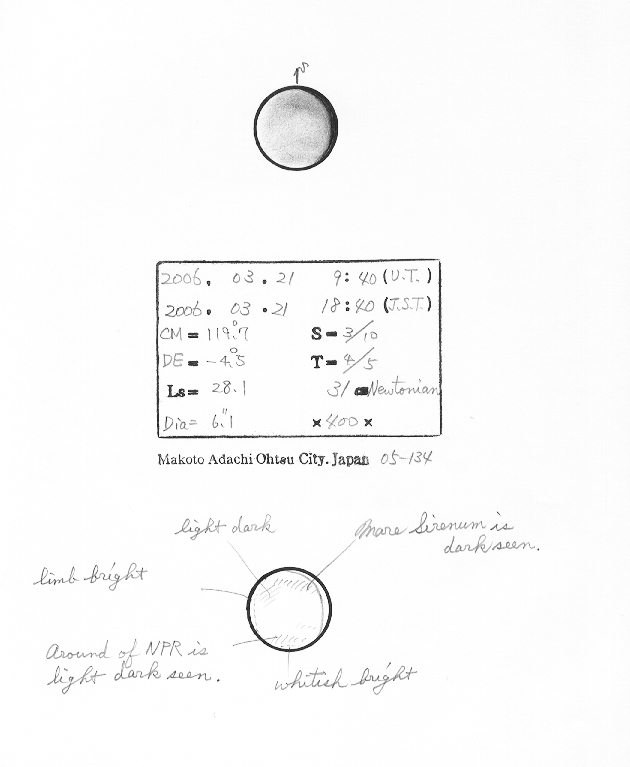 S
2006. 03. 21 9:40 (U.T.)
2006. 03. 21 18:40 (J.S.T.)
CM = 119.°7 S = 3/10
DE = -4.°5 T = 4/5
Ls = 28.1 31 cm Newtonian
Dia = 6."1 ×400 ×
Makoto Adachi Ohtsu City. Japan 05-134
light dark
Mare Sirenum is
dark seen.
limb bright
Around of NPR is
light dark seen.
whitish bright